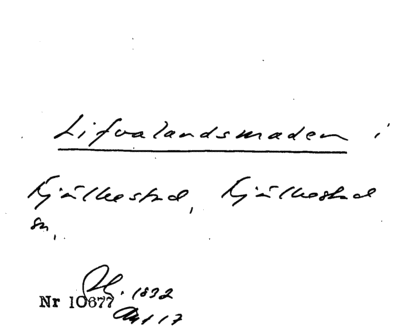 Lifvalandsmaden i
Kjälkestad, Kjälkestad
sn.
Nr 10677
1832
Akt 17